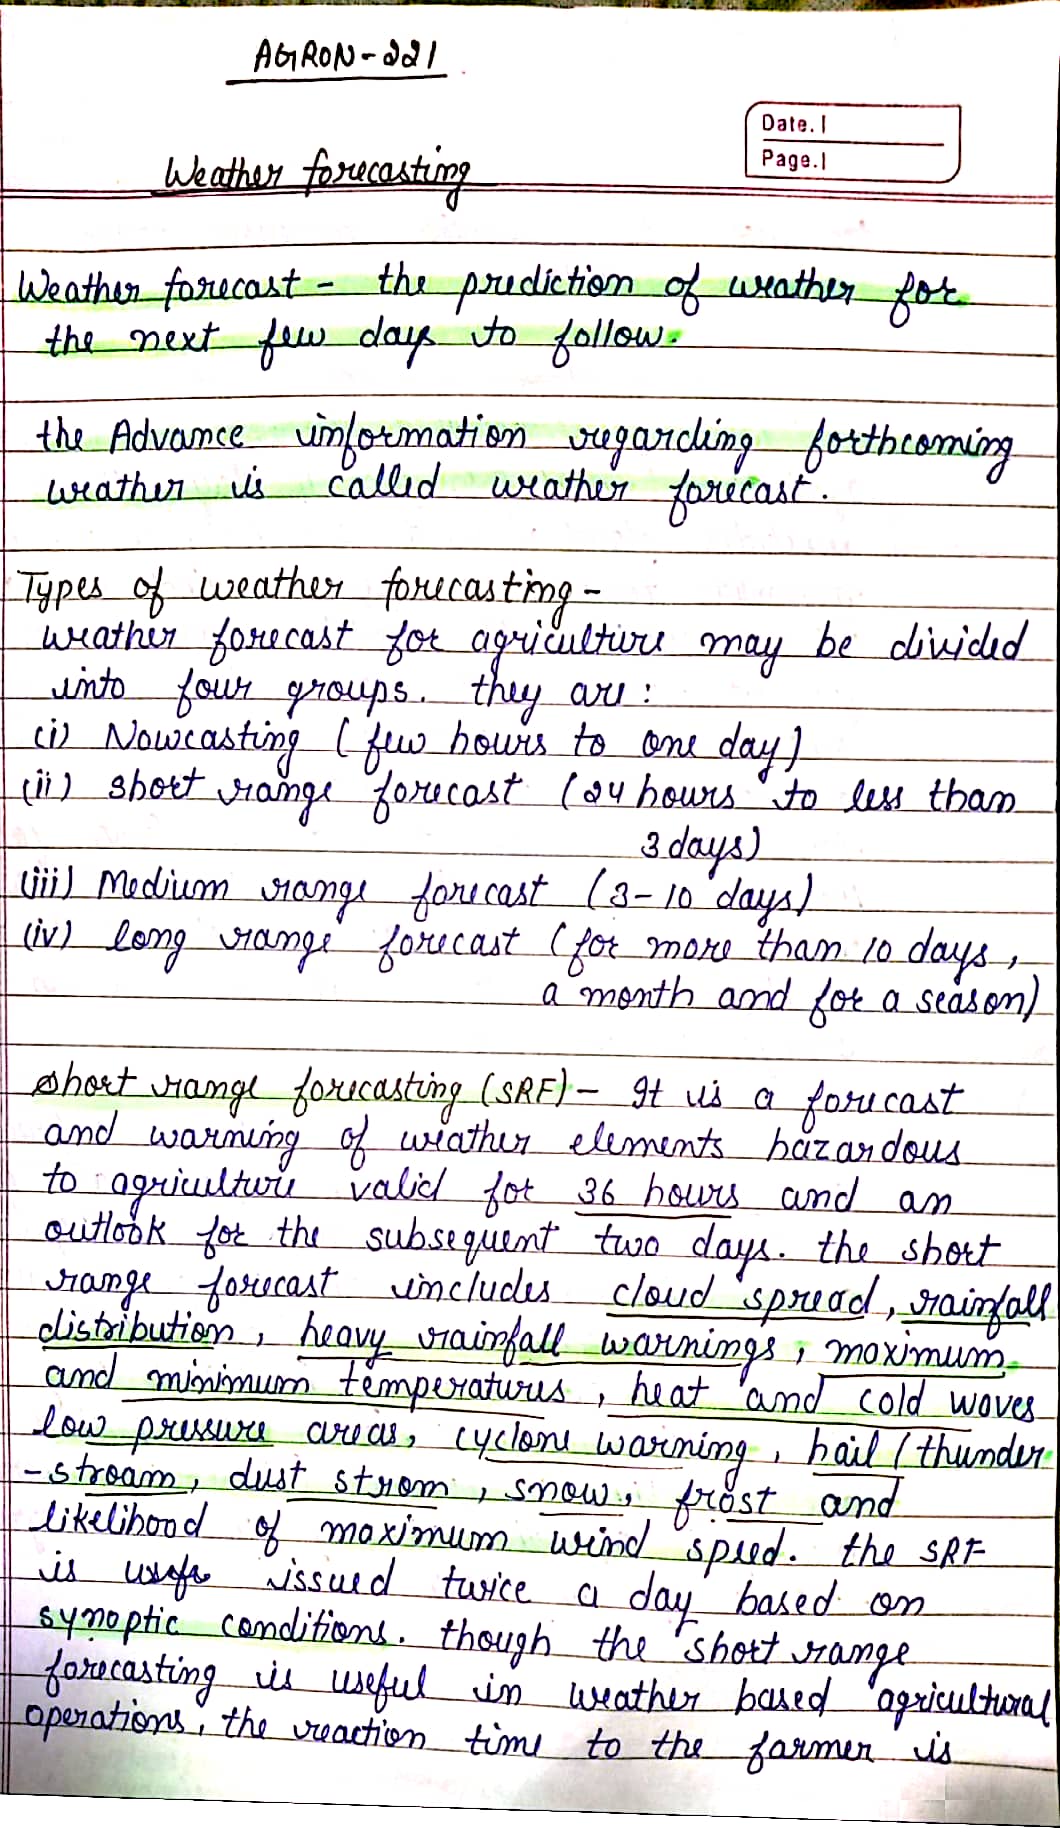 AGRON-221
Date. |
Page. |
Weather forecasting
Weather forecast - the prediction of weather for
the next few days to follow.
the Advance information regarding forthcoming
weather is called weather forecast.
Types of weather forecasting -
weather forecast for agriculture may be divided
into four groups. they are :
(i) Nowcasting (few hours to one day)
(ii) short range forecast (24 hours to less than
3 days)
(iii) Medium range forecast (3-10 days)
(iv) long range forecast (for more than 10 days,
a month and for a season)
short range forecasting (SRF) - It is a forecast
and warning of weather elements hazardous
to agriculture valid for 36 hours and an
outlook for the subsequent two days. the short
range forecast includes cloud spread, rainfall
distribution, heavy rainfall warnings, maximum
and minimum temperatures, heat and cold waves
low pressure areas, cyclone warning, hail / thunder
-stroam, dust strom, snow, frost and
likelihood of maximum wind speed. the SRF
is issued twice a day based on
synoptic conditions. though the short range
forecasting is useful in weather based agricultural
operations, the reaction time to the farmer is